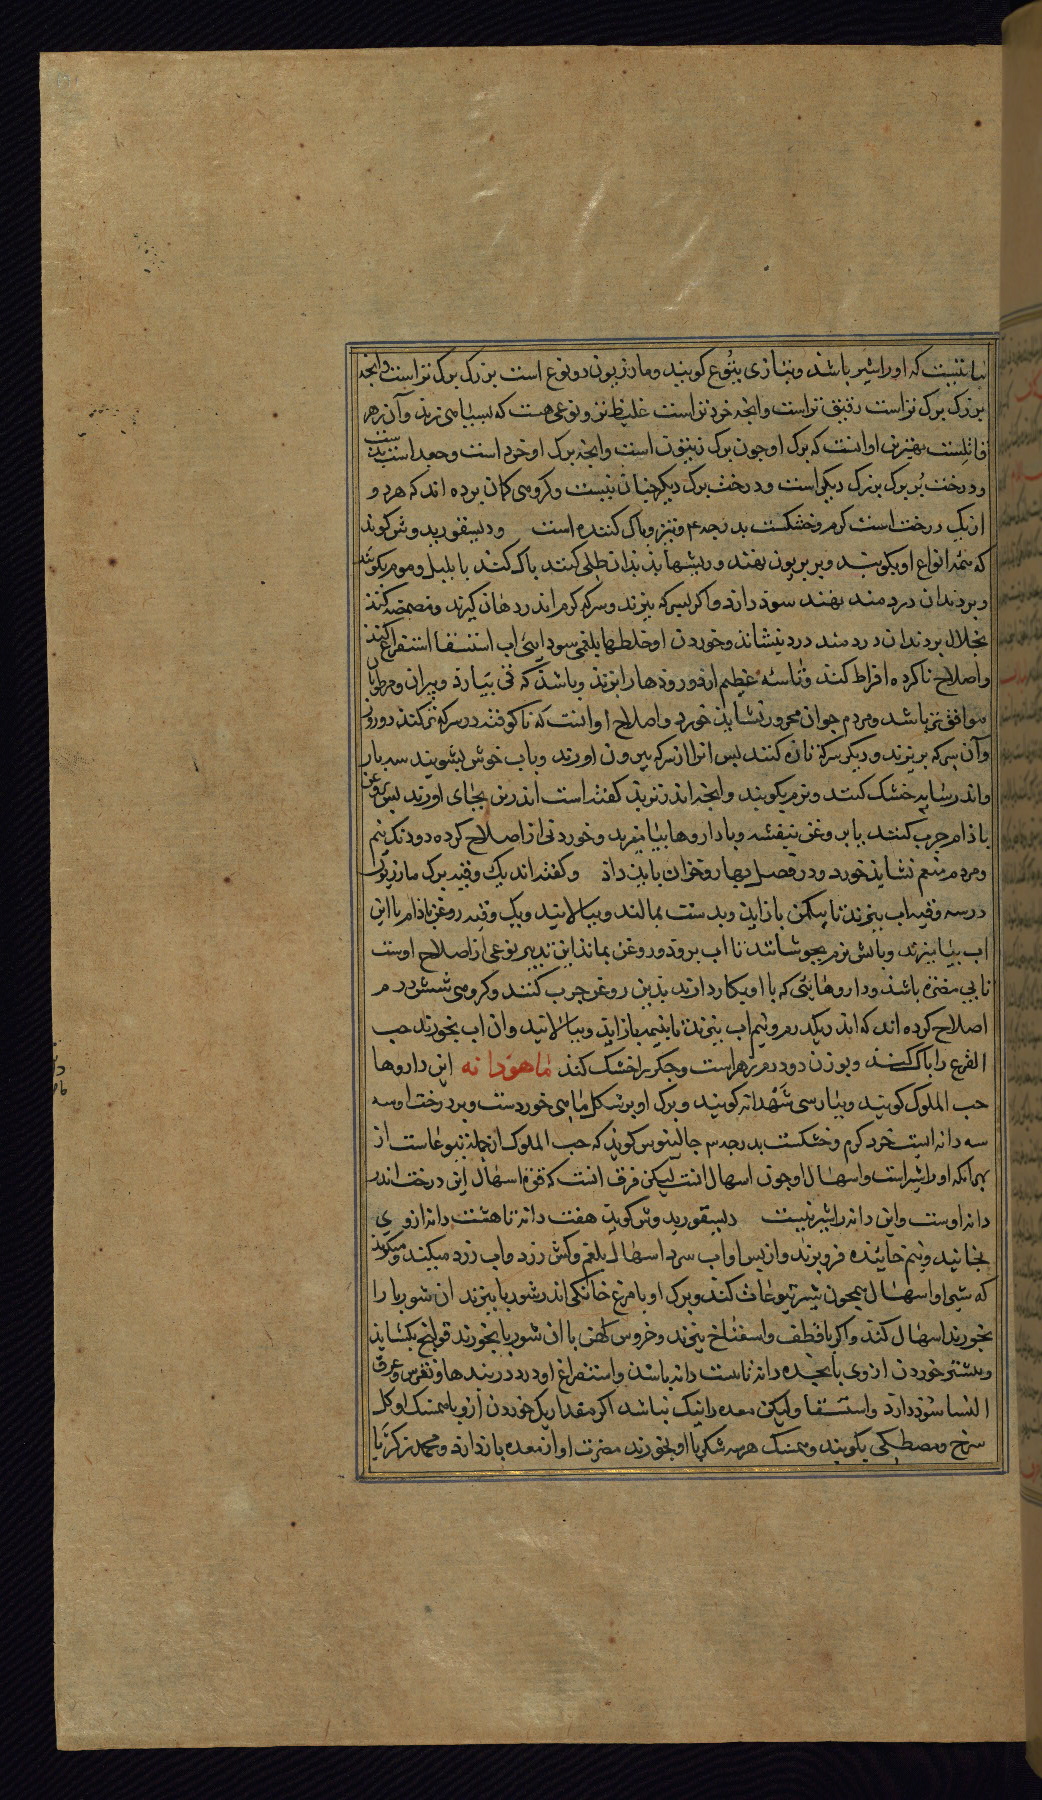 نباتیست که او را شیر باشد و بتازی یتوع کویند و مازریون دو نوع است بزرک برک تراست و انچه
بزرک برک تراست رقیق تراست و انچه خرد تراست غلیظ تر و نوعی هست که بسیاهی زند وآن زهر
قاتلست بهترین او انست که برک او چون برک زیتون است و انچه برک او خرد است و جعد است بد است
و درخت بر برک بزرک دیکر است و درخت برک دیکر چنان نیست و کروهی کمان برده اند که هر دو
از یک درخت است کرم و خشکست بدرجه ۴ و تیز و پاک کننده است و دیسقوریدوش کوید
که همه انواع او بکوبند و بر بریون نهند و ریشها بذ بدان طلی کنند پاک کند با بلبل و موم بکوشند
و بر دندان دردمند نهند سوذ دارد و اکر بسرکه بپزند و سرکه کرم اندر دهان کیرند و مضمضه کنند
بخلال بر دندان دردمند درد بنشاند و خوردن او خلطها بلغمی سودایی آب استسقا استفراغ کند
و اصلاح ناکرده افراط کند و تاسه عظیم ارد و روذها را برنذ و باشذ که قی بیارد و پیران و مرطوبان را
موافق تر باشد و مردم جوان محرور نشاید خورد و اصلاح او انست که ناکوفته در سرکه ترکنند دو روز
وآن سرکه بریزند و دیکر سرکه تازه کنند پس انرا از سرکه بیرون اورند و باب خوش بشویند سه بار
و اندر سایه خشک کنند و نرم بکوبند و انچه اندر تربذ کفته است اندرین بجای اورند پس بروغن
باذام چرب کنند یا بروغن بنفشه و با داروها بیامیزند و خوردنی از اصلاح کرده دو دنک نیم
و مردم متنعم نشاید خورد و در فصل بهار و خزان باید داد و کفته اند یک وقیه برک مازریون
در سه وقیه اب بپزند تا بیکمن باز اید و بدست بمالند و بپالایند و یک وقیه روغن باذام با این
اب بیامیزند و باتش نرم بجوشانند تا اب برود و روغن بماند این تدبیر نوعی از اصلاح اوست
تا بی مضرة باشذ و داروهایی که با او بکار دارند بذین روغن چرب کنند و کروهی شش درم
اصلاح کرده اند که اندر یکدرم و نیم اب بپزند تا بنیمه باز اید و بپالایند وان اب بخورند حب
القرع را پاک کند و بوزن دو درم زهر است و جکر را خشک کند ماهودانه این داروها
حب الملوک کویند و بپارسی شهدانه کویند و برک او بر شکل ماهی خوردست و بر درخت او سه
سه دانه ایست خرد کرم و خشکست بدرجه ۳ جالینوس کوید که حب الملوک از جمله یتوعاست از
بهرانکه او را شیر است و اسهال او چون اسهال انست لیکن فرق انست که قوة اسهال این درخت اندر
دانه اوست و این دانه را شیر نیست دیسقوریدوش کوید هفت دانه تا هشت دانه از وی
بخایند و نیم خاییده فرو برند و از پس او اب سرد اسهال بلغم و کش زرد و اب زرد میکند و میکویند
که شیر او اسهال همچون شیر یتوعات کند و برک او با مرغ خانکی اندر شوربا بپزند ان شوربا را
بخورند اسهال کند و اکر با قطف و اسفناخ بپزند و خروس کهن با ان شوربا بخورند قولنج بکشاید
و بیشتر خوردن از وی پانجده دانه تا بیست دانه باشد و استفراغ او درد دربندها و نقرس و عرق
النسا سوذ دارد و استسقا ولیکن معده را نیک نباشد اکر مقدار یک خوردن ازو با همسنک او کل
سرخ و مصطکی بکوبند و همسنک هر سه شکر با او بخورند مضرت او از معده باز دارد و محمد زکریا